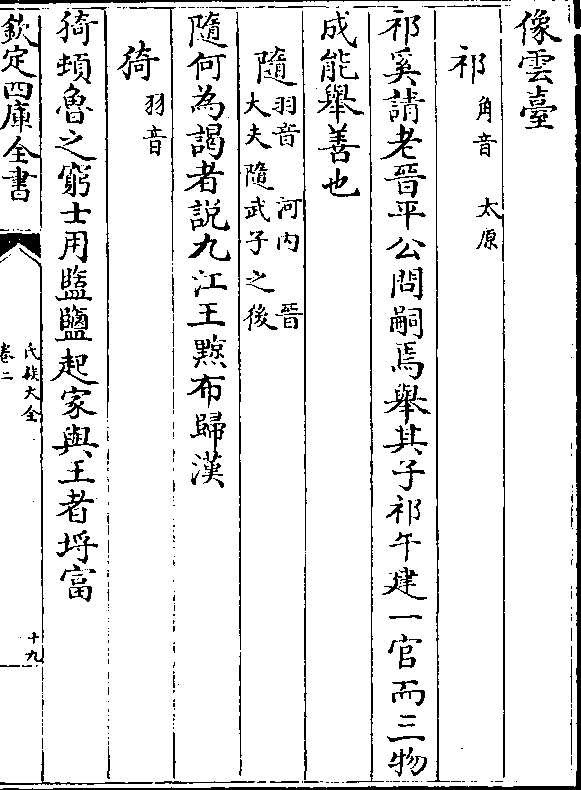 像雲臺
祁 角音 太原
祁奚請老晉平公問嗣焉舉其子祁午建一官而三物
成能舉善也
隨 羽音 河内 晉
大夫隨武子之後
隨何為謁者説九江王黥布歸漢
猗 羽音
猗頓魯之窮士用盬鹽起家與王者埒富
欽定四庫全書
氏族大全
卷二
十九